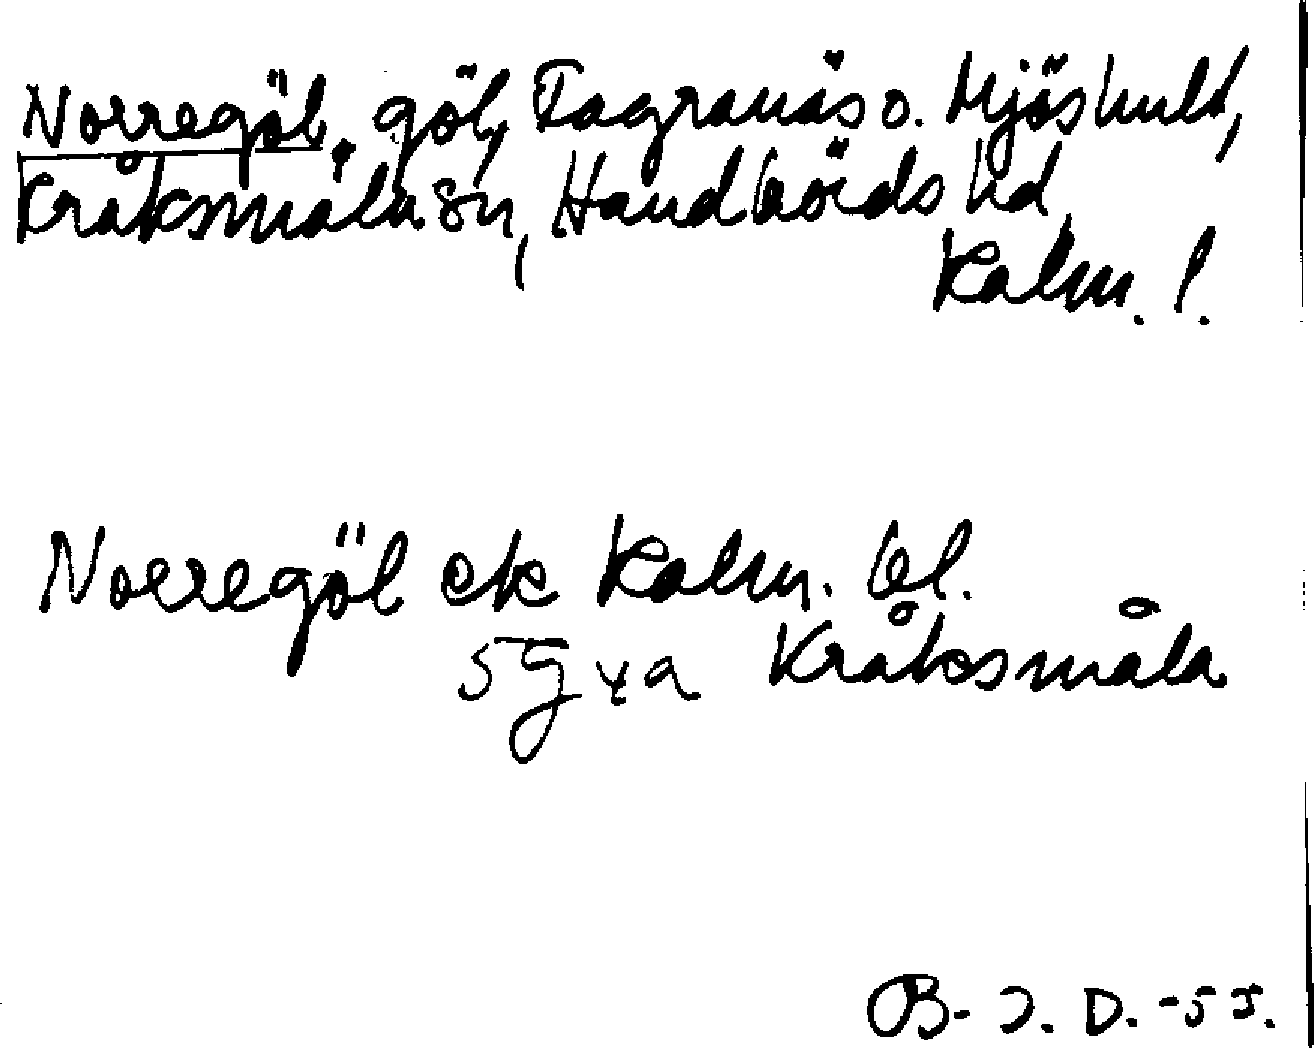 Norregöl, göl, Fagranäs o. Mjöshult,
Kråksmåla sn, Handbörds hd,
Kalm. l.
Norregöl ek Kalm. bl.
5g xa Kråksmåla
B-J. D. -55.